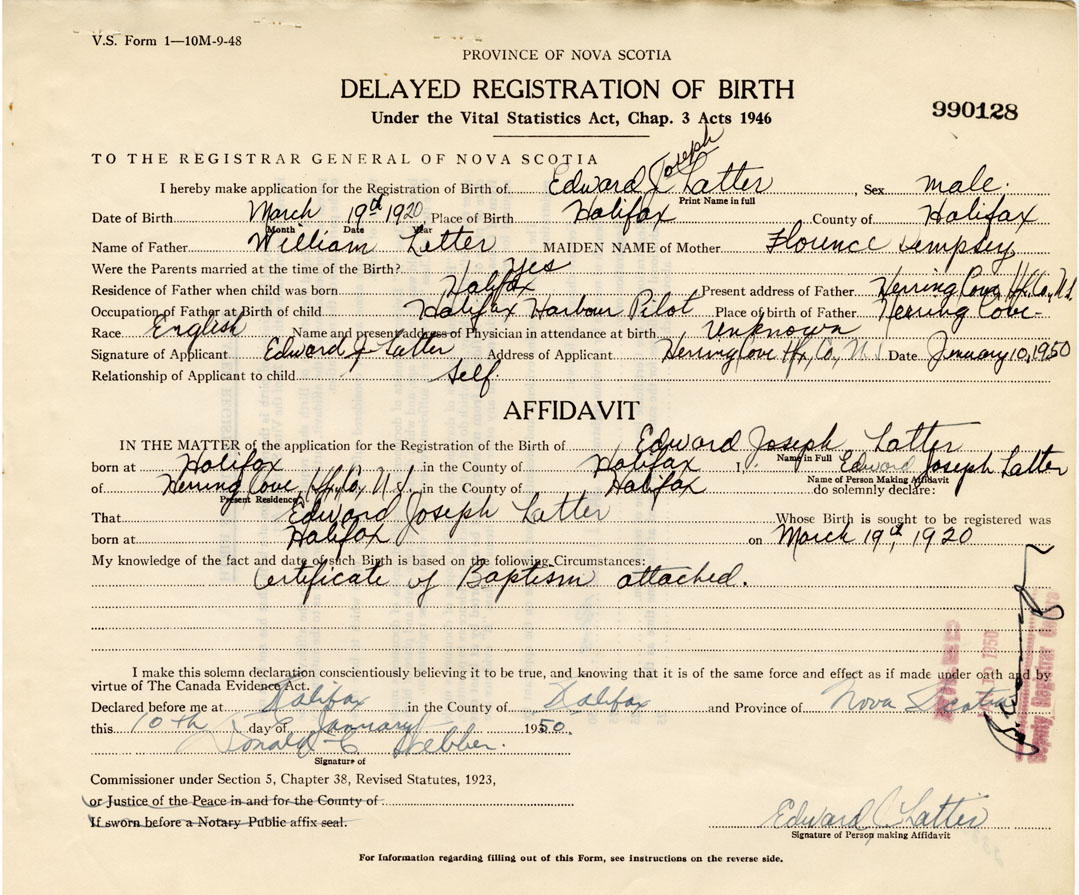 V.S. Form 1—10M-9-48
PROVINCE OF NOVA SCOTIA
DELAYED REGISTRATION OF BIRTH
990128
Under the Vital Statistics Act, Chap. 3 Acts 1946
TO THE REGISTRAR GENERAL OF NOVA SCOTIA
Joseph
I hereby make application for the Registration of Birth of Edward J. Latter Sex male.
Print Name in full
Date of Birth March 19th 1920 Place of Birth Halifax County of Halifax
Month Date Year
Name of Father William Latter MAIDEN NAME of Mother Florence Dempsey
Were the Parents married at the time of the Birth? yes
Residence of Father when child was born Halifax Present address of Father Herring Cove Hfx. Co., N.S.
Occupation of Father at Birth of child Halifax Harbour Pilot Place of birth of Father Herring Cove-
Race English Name and present address of Physician in attendance at birth Unknown
Signature of Applicant Edward J. Latter Address of Applicant Herring Cove Hfx, Co, N.S. Date January 10, 1950
Relationship of Applicant to child Self.
AFFIDAVIT
IN THE MATTER of the application for the Registration of the Birth of Edward Joseph Latter
Name in Full
born at Halifax in the County of Halifax I, Edward Joseph Latter
Name of Person Making Affidavit
of Herring Cove, Hfx, Co, N.S. in the County of Halifax do solemnly declare:
Present Residence
That Edward Joseph Latter Whose Birth is sought to be registered was
born at Halifax on March 19th, 1920
My knowledge of the fact and date of such Birth is based on the following Circumstances:
Certificate of Baptism attached.
I make this solemn declaration conscientiously believing it to be true, and knowing that it is of the same force and effect as if made under oath and by
virtue of The Canada Evidence Act.
Declared before me at Halifax in the County of Halifax and Province of Nova Scotia
this 10th day of January 1950.
Donald C Webber.
Signature of
Commissioner under Section 5, Chapter 38, Revised Statutes, 1923,
or Justice of the Peace in and for the County of
If sworn before a Notary Public affix seal.
Edward J Latter
Signature of Person making Affidavit
For Information regarding filling out of this Form, see instructions on the reverse side.
1950
Deputy Registrar General